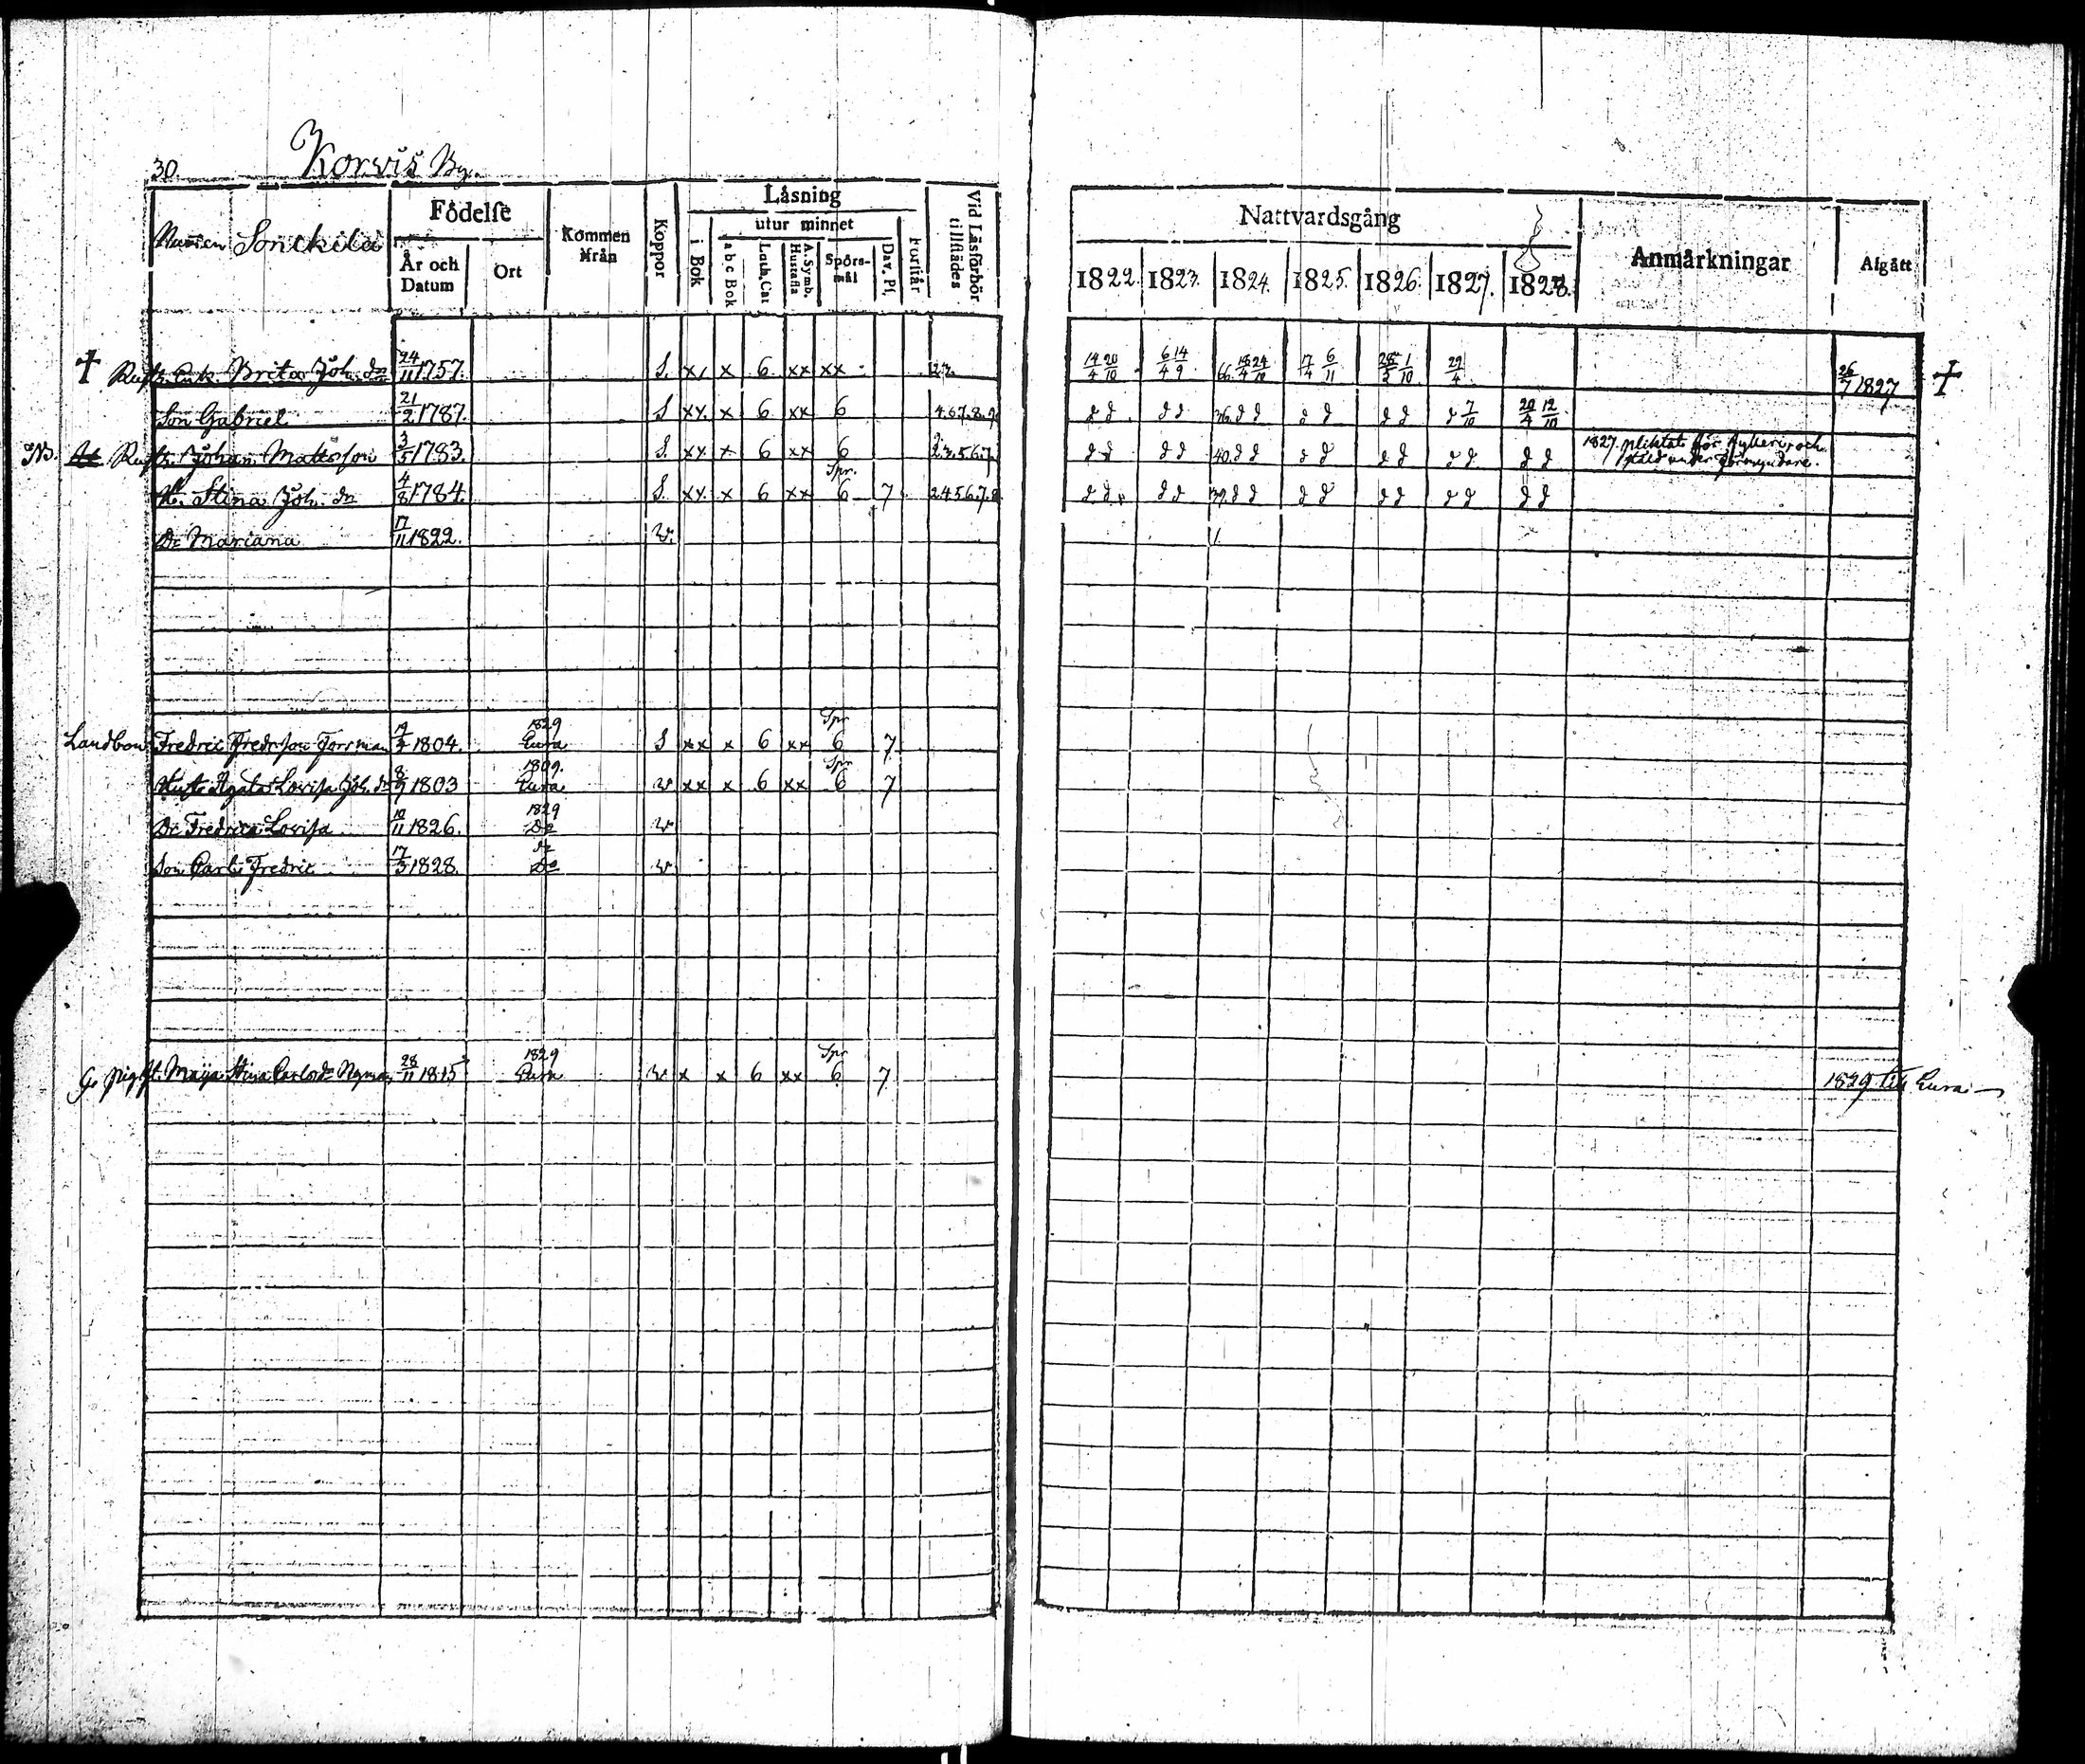 30. Korvis By.
Numen Sonckila
Födelſe
År och Datum
Ort
Kommen ifrån
Koppor
Läsning
i Bok
utur minnet
a b c Bok
Luth. Cat
A. Symb. Huſtafla
Spörs-mål
Dav. Pſ.
Forſtår
Vid Läsförhör tillſtädes
Nattvardsgång
1822. 1823. 1824. 1825. 1826. 1827. 1828.
Anmärkningar
Afgått
+ Rustb. Enk. Brita Joh. dr 24/11 1757. S. xx x 6 xx xx 2.3. 14/4 20/10 6/4 14/9 66. 18/4 24/10 17/4 6/11 1/10 29/4 26/7 1827 +
Son Gabriel 21/2 1787. S xx. x 6 xx 6 4.6.7.8.9. d d d d 36. d d d d d d d 7/10 20/4 12/10
NB. Rustb. Johan Mattsson 3/5 1783. S. xx x 6 xx 6 2.3.5.6.7. d d d d 40. d d d d d d d d d d 1827. pliktat för fylleri, och
ställd under förmyndare.
H. Stina Joh. dr 4/8 1784. S. xx. x 6 xx Spr. 6 7 2.4.5.6.7.8 d d d d 39. d d d d d d d d d d
Dr Mariana 17/11 1822. W. 1.
Landbon Fredric Fredrsson Forsman 1804. 1829 Eura S xx x 6 xx Spr 6 7
Hust. Agata Lovisa Joh. dr 8/9 1803 1809. Eura W xx x 6 xx Spr 6 7
Dr Fredrica Lovisa 10/11 1826. 1829 Do W
Son Carl Fredric 17/3 1828. Do W
pig. Maija Stina Carlsdr Nyman 28/11 1815 1829 Eura W x x 6 xx Spr 6 7 1829 till Eura